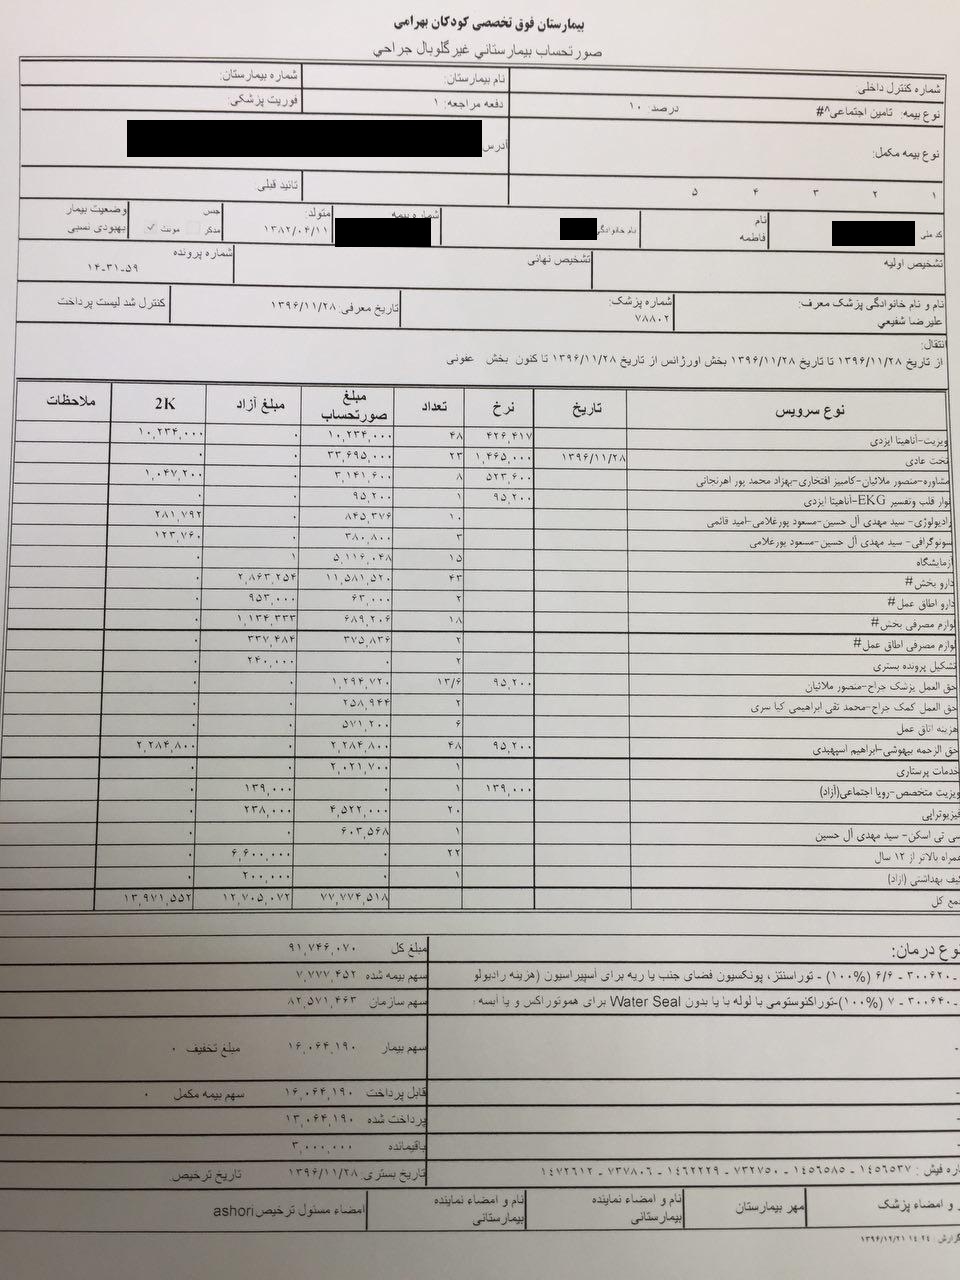 بیمارستان فوق تخصصی کودکان بهرامی
صورتحساب بیمارستانی غیرگلوبال جراحی
شماره کنترل داخلی: نام بیمارستان: شماره بیمارستان:
نوع بیمه: تامین اجتماعی^# درصد: ۱۰ دفعه مراجعه: ۱ فوریت پزشکی:
نوع بیمه مکمل: آدرس
۱ ۲ ۳ ۴ ۵ تائید قبلی:
کد ملی نام نام خانوادگی شماره بیمه متولد: جنس وضعیت بیمار
فاطمه ۱۳۸۲/۰۴/۱۱ مذکر مونث بهبودی نسبی
تشخیص اولیه تشخیص نهائی: شماره پرونده
۱۴-۳۱-۵۹
نام و نام خانوادگی پزشک معرف: شماره پزشک: تاریخ معرفی: ۱۳۹۶/۱۱/۲۸ کنترل شد لیست پرداخت
علیرضا شفیعی ۷۸۸۰۲
انتقال:
از تاریخ ۱۳۹۶/۱۱/۲۸ تا تاریخ ۱۳۹۶/۱۱/۲۸ بخش اورژانس از تاریخ ۱۳۹۶/۱۱/۲۸ تا کنون بخش عفونی
نوع سرویس تاریخ نرخ تعداد مبلغ صورتحساب مبلغ آزاد 2K ملاحظات
ویزیت-آناهیتا ایزدی ۴۲۶,۴۱۷ ۴۸ ۱۰,۲۳۴,۰۰۰ ۰ ۱۰,۲۳۴,۰۰۰
تخت عادی ۱۳۹۶/۱۱/۲۸ ۱,۴۶۵,۰۰۰ ۲۳ ۳۳,۶۹۵,۰۰۰ ۰ ۰
مشاوره-منصور ملائیان-کامبیز افتخاری-بهزاد محمد پور اهرنجانی ۵۲۳,۶۰۰ ۸ ۳,۱۴۱,۶۰۰ ۰ ۱,۰۴۷,۲۰۰
نوار قلب وتفسیر EKG-آناهیتا ایزدی ۹۵,۲۰۰ ۱ ۹۵,۲۰۰ ۰ ۰
رادیولوژی- سید مهدی آل حسین-مسعود پورغلامی-امید قائمی ۱۰ ۸۴۵,۳۷۶ ۰ ۲۸۱,۷۹۲
سونوگرافی- سید مهدی آل حسین-مسعود پورغلامی ۳ ۳۸۰,۸۰۰ ۰ ۱۲۳,۷۶۰
آزمایشگاه ۱۵ ۵,۱۱۶,۰۴۸ ۱ ۰
دارو بخش# ۴۳ ۱۱,۵۸۱,۵۲۰ ۲,۸۶۳,۲۵۴ ۰
دارو اطاق عمل# ۲ ۶۳,۰۰۰ ۹۵۳,۰۰۰ ۰
لوازم مصرفی بخش# ۱۸ ۶۸۹,۲۰۶ ۱,۱۳۴,۳۳۳ ۰
لوازم مصرفی اطاق عمل# ۲ ۳۷۵,۸۳۶ ۳۳۷,۴۸۴ ۰
تشکیل پرونده بستری ۲ ۰ ۲۴۰,۰۰۰ ۰
حق العمل پزشک جراح-منصور ملائیان ۹۵,۲۰۰ ۱۳/۶ ۱,۲۹۴,۷۲۰ ۰ ۰
حق العمل کمک جراح-محمد تقی ابراهیمی کیا سری ۲ ۲۵۸,۹۴۴ ۰ ۰
هزینه اتاق عمل ۶ ۵۷۱,۲۰۰ ۰ ۰
حق الزحمه بیهوشی-ابراهیم اسپهبدی ۹۵,۲۰۰ ۴۸ ۲,۲۸۴,۸۰۰ ۰ ۲,۲۸۴,۸۰۰
خدمات پرستاری ۱ ۲,۰۲۱,۷۰۰ ۰ ۰
ویزیت متخصص-رویا اجتماعی(آزاد) ۱۳۹,۰۰۰ ۱ ۰ ۱۳۹,۰۰۰ ۰
فیزیوتراپی ۲۰ ۴,۵۲۲,۰۰۰ ۲۳۸,۰۰۰ ۰
سی تی اسکن- سید مهدی آل حسین ۱ ۶۰۳,۵۶۸ ۰ ۰
همراه بالاتر از ۱۲ سال ۲۲ ۰ ۶,۶۰۰,۰۰۰ ۰
کیف بهداشتی (ازاد) ۱ ۰ ۲۰۰,۰۰۰ ۰
جمع کل ۷۷,۷۷۴,۵۱۸ ۱۲,۷۰۵,۰۷۲ ۱۳,۹۷۱,۵۵۲
نوع درمان: مبلغ کل ۹۱,۷۴۶,۰۷۰
-۳۰۰۶۲۰ - ۶/۶ (%۱۰۰) - توراسنتز، پونکسیون فضای جنب یا ریه برای آسپیراسیون (هزینه رادیولو سهم بیمه شده ۷,۷۷۷,۴۵۲
-۳۰۰۶۴۰ - ۷ (%۱۰۰)-توراکئوستومی با لوله با یا بدون Water Seal برای هموتوراکس و یا آبسه : سهم سازمان ۸۲,۵۷۱,۴۶۳
سهم بیمار ۱۶,۰۶۴,۱۹۰ مبلغ تخفیف ۰
قابل پرداخت ۱۶,۰۶۴,۱۹۰ سهم بیمه مکمل ۰
پرداخت شده ۱۳,۰۶۴,۱۹۰
باقیمانده ۳,۰۰۰,۰۰۰
اره فیش : ۱۴۵۶۵۳۷ - ۱۴۵۶۵۸۵ - ۷۳۲۷۵۰ - ۱۴۶۲۲۲۹ - ۷۳۷۸۰۶ - ۱۴۷۲۶۱۲ تاریخ بستری: ۱۳۹۶/۱۱/۲۸ تاریخ ترخیص:
ر و امضاء پزشک مهر بیمارستان نام و امضاء نماینده بیمارستانی نام و امضاء نماینده بیمارستانی امضاء مسئول ترخیص ashori
گزارش: ۱۴:۲۴ ۱۳۹۶/۱۲/۲۱